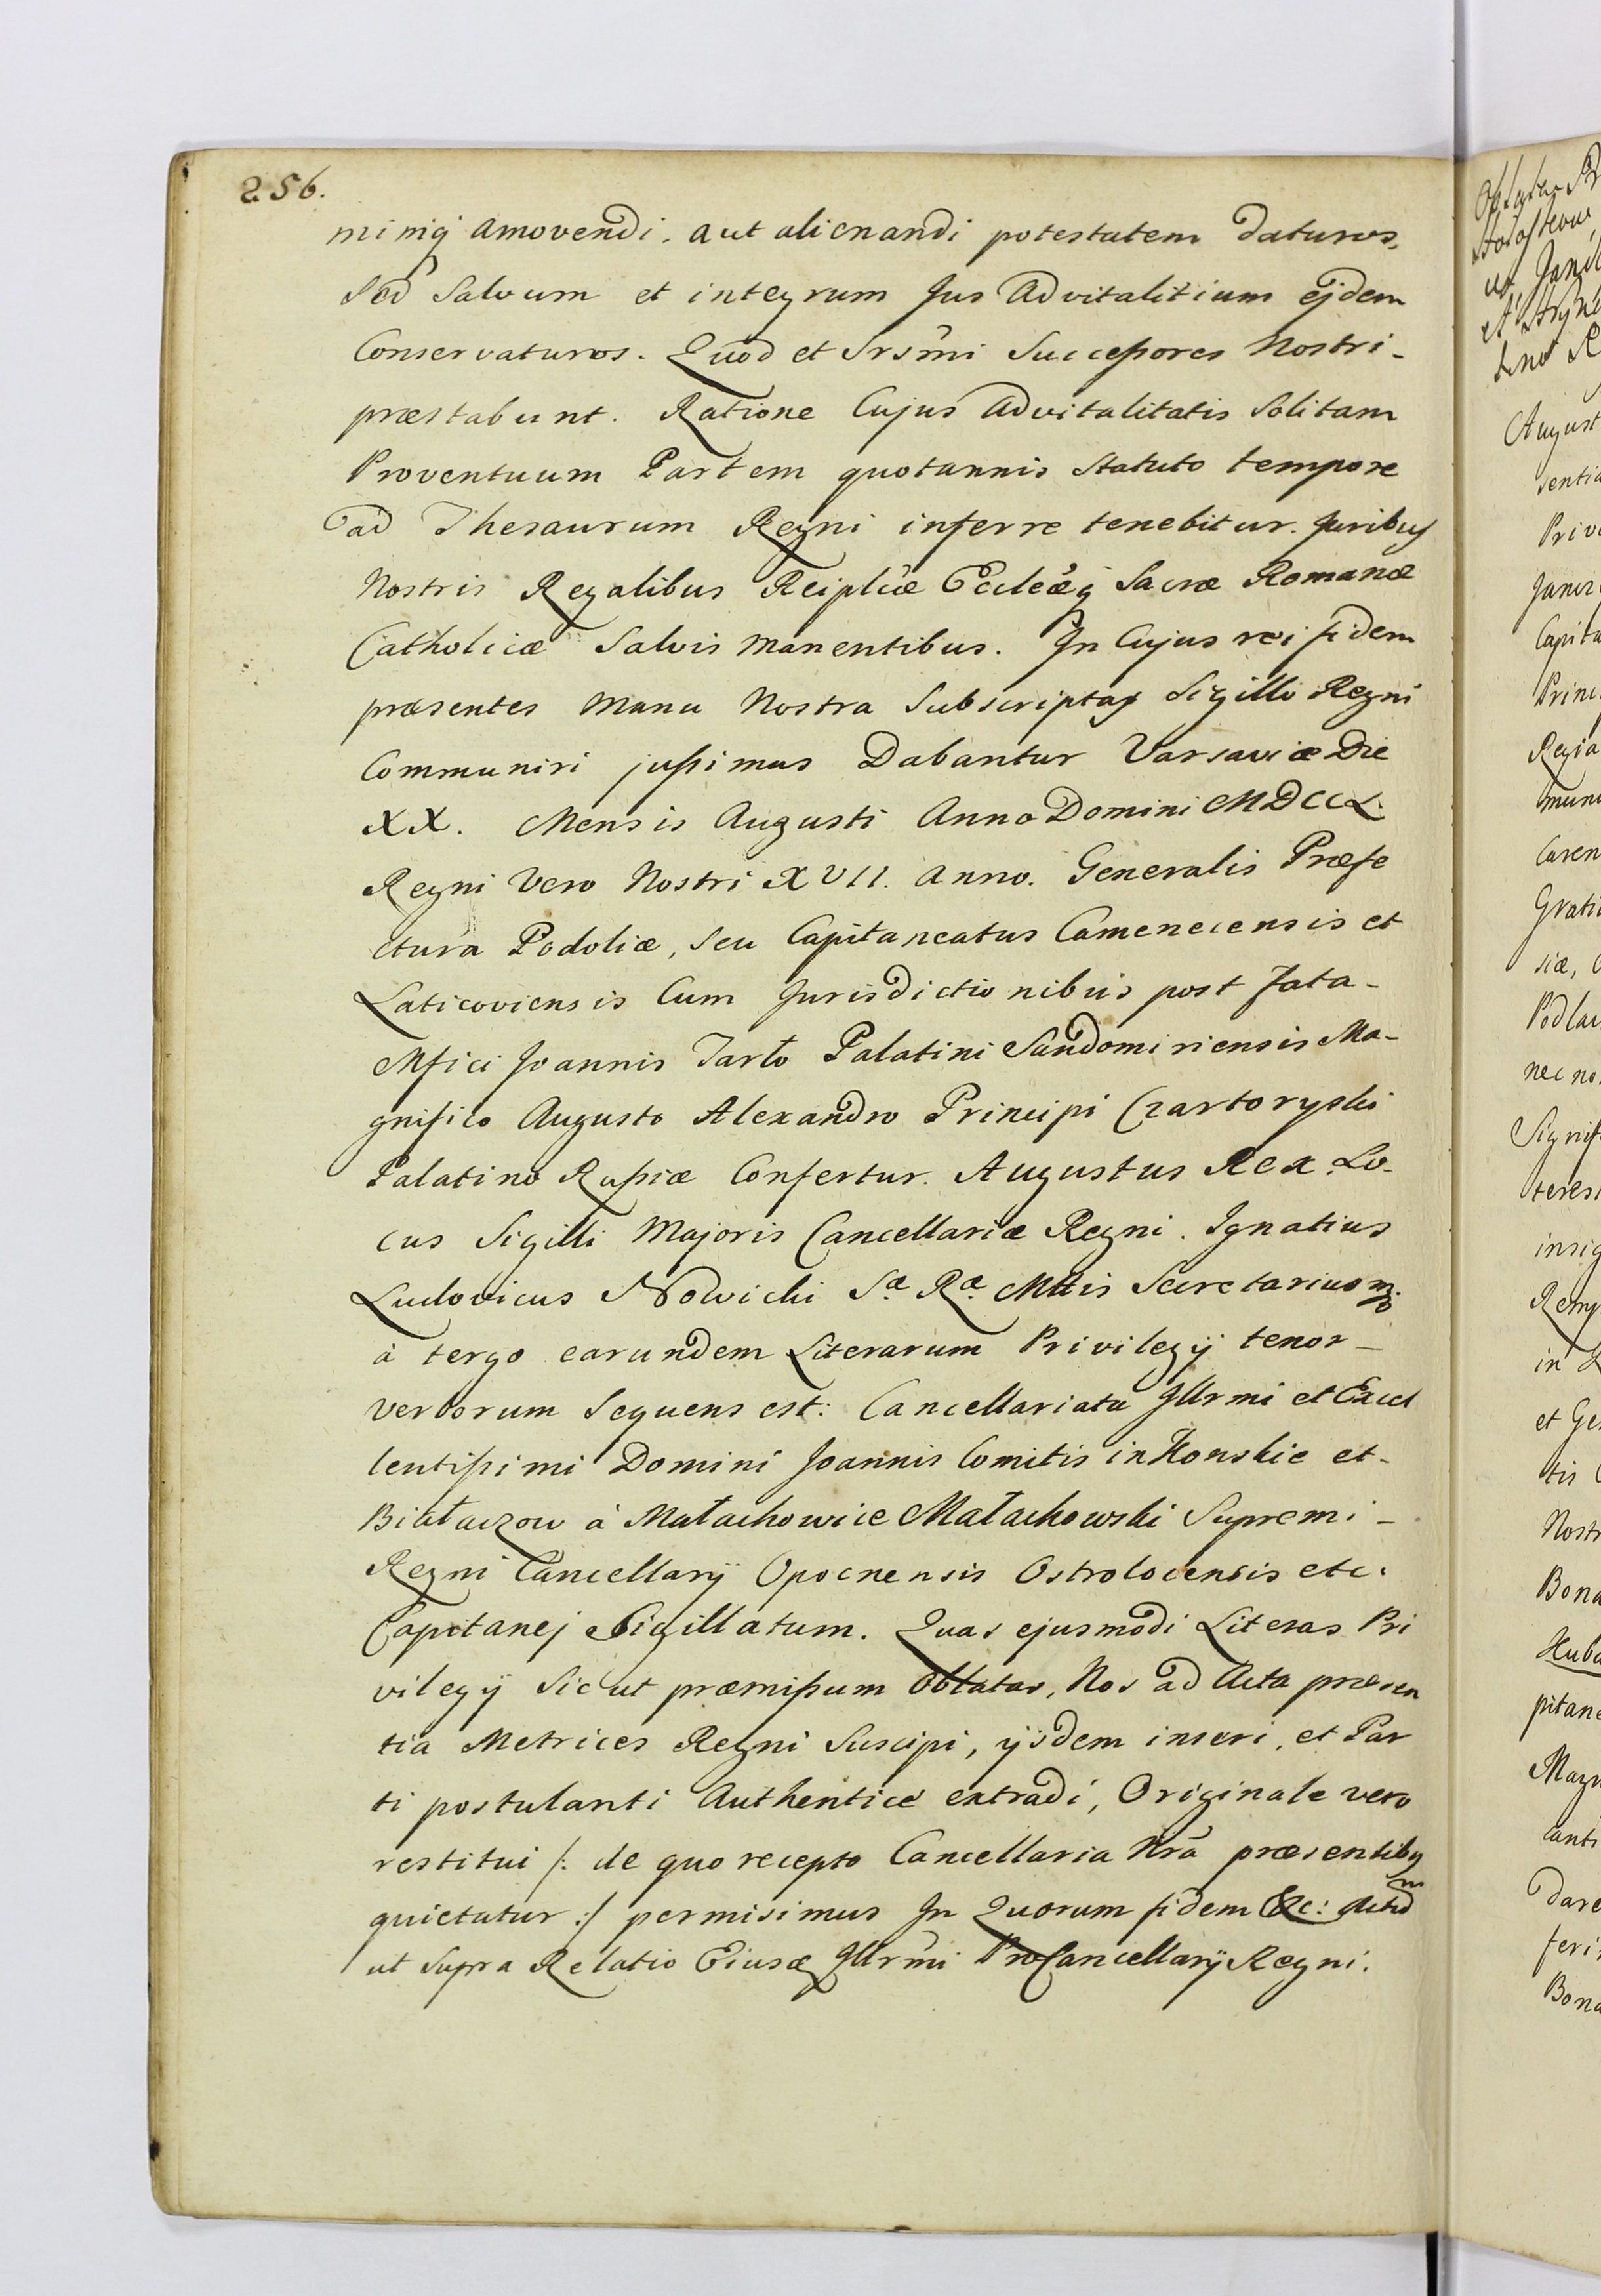 256.
miniq amovendi. aut alienandi potestatem daturos,
Sed Salvum et integrum Jus Advitalitium ejdem
Conservaturos. Quod et Srsmi Successores Nostri-
præstabunt. Ratione Cujus Advitalitatis Solitam
Proventuum Partem quotannis Statuto tempore
ad Thesaurum Regni inferre tenebitur. Juribus
Nostris Regalibus Reiplicæ Eccleæq Sacræ Romanæ
Catholicæ Salvis manentibus. In Cujus rei fidem
præsentes Manu Nostra Subscriptas Sigillo Regni
Communiri jussimus Dabantur Varsaviæ Die
XX. Mensis Augusti Anno Domini MDCCL.
Regni Vero Nostri XVII. Anno. Generalis Præfe
ctura Podoliæ, seu Capitaneatus Camenecensis et
Laticoviensis Cum Jurisdictionibus post Fata-
Mfici Joannis Tarło Palatini Sandomiriensis Ma-
gnifico Augusto Alexandro Principi Czartoryski
Palatino Russiæ Confertur. Augustus Rex. Lo-
cus Sigilli Majoris Cancellariæ Regni. Ignatius
Ludovicus Nowicki Sæ Ræ Mttis Secretarius mp.
à tergo earundem Literarum Privilegij tenor-
verborum Sequens est: Cancellariatu Illrmi et Excel
lentissimi Domini Joannis Comitis in Konskie et-
Białaczow à Małachowice Małachowski Supremi-
Regni Cancellarij Opocnensis Ostrolocensis etc.
Capitanej Sigillatum. Quas ejusmodi Literas Pri
vilegij Sicut præmissum Oblatas, Nos ad Acta præsen
tia Metrices Regni Suscipi, ijsdem inseri, et Par
ti postulanti Authenticè extradi, Originale vero
restitui /: de quo recepto Cancellaria Nra præsentibus
quietatur :/ permisimus In Quorum fidem &c:
ut Supra Relatio Eiusdem Illrmi ProCancellarij Regni.
August
sentia
Capita
Regia
Podlac
nec no
insig
et Ge
Nostr
Bona
pitane
dare
feri
Bona